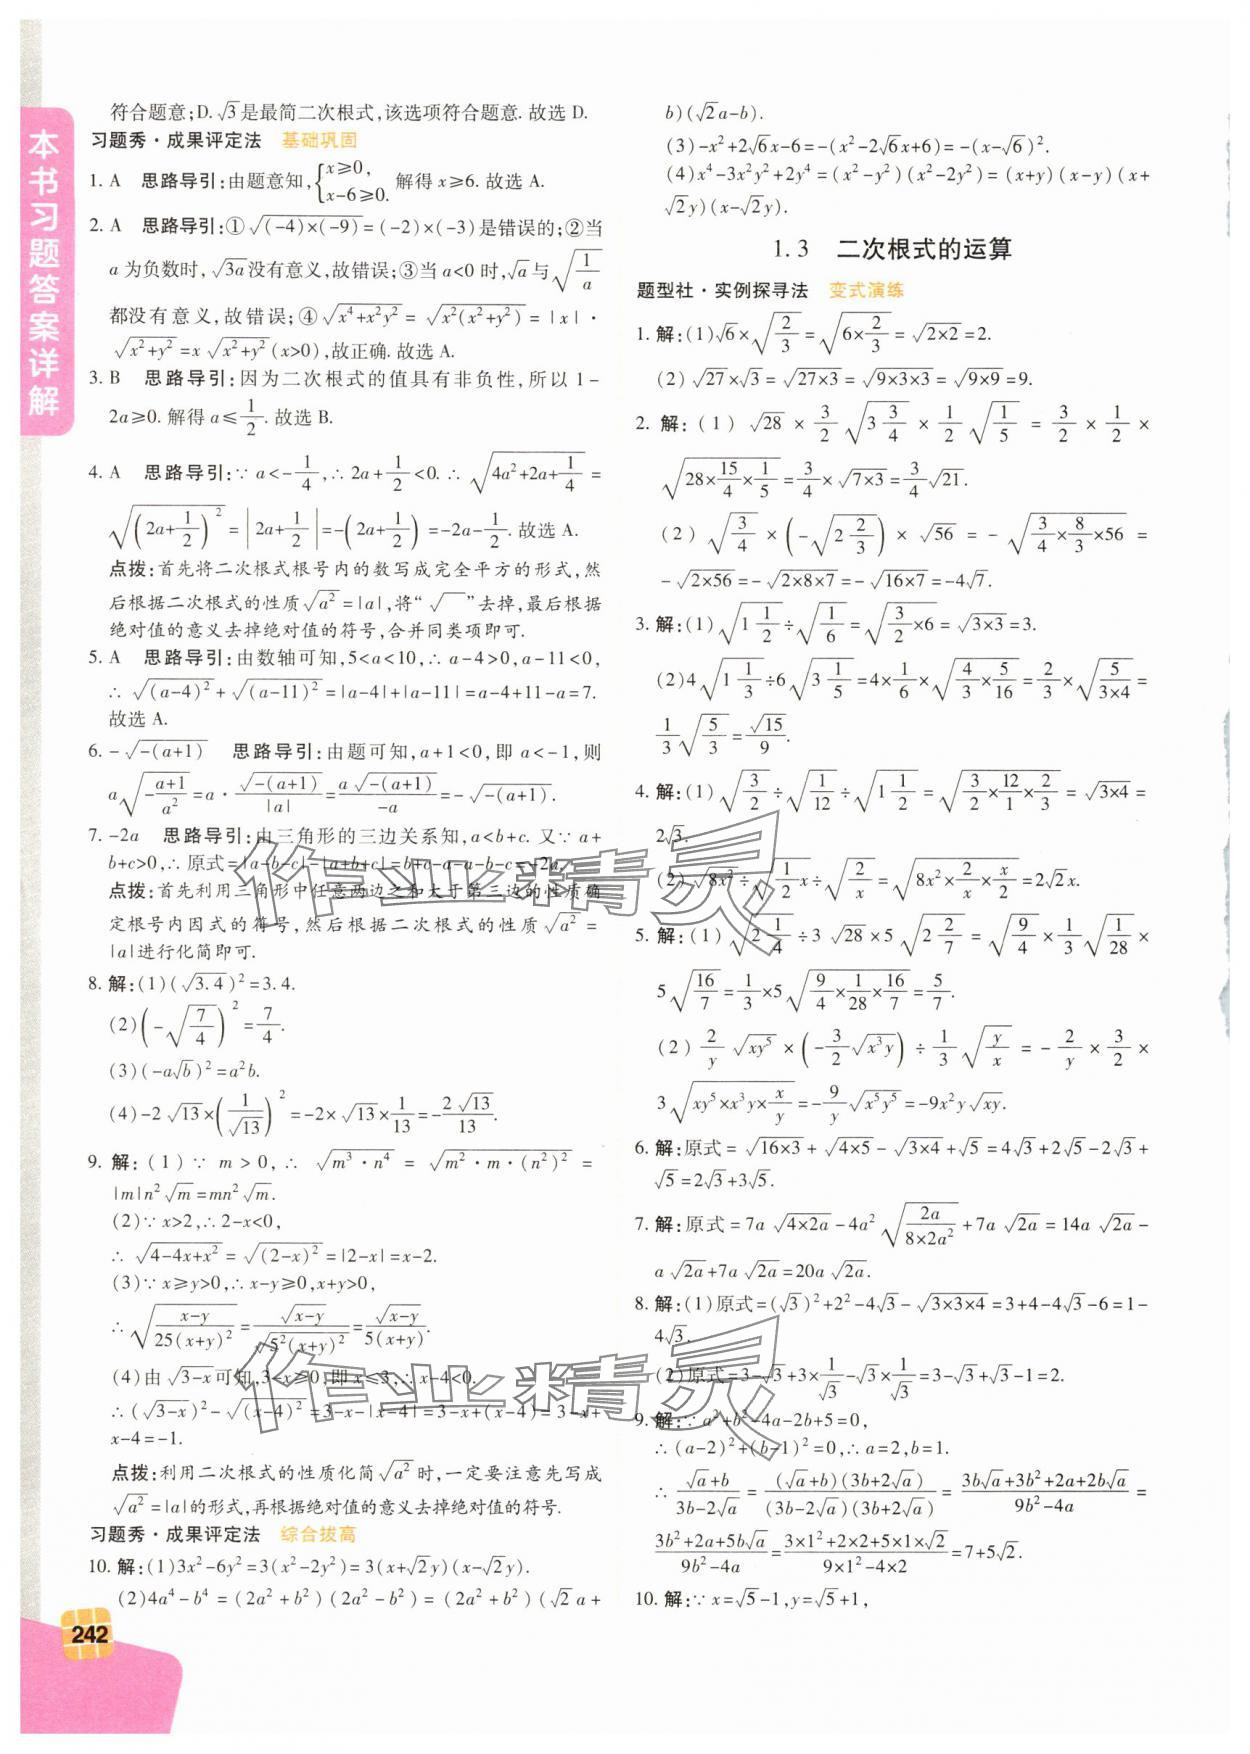 本书习题答案详解
符合题意;D. √3是最简二次根式,该选项符合题意. 故选 D.
习题秀·成果评定法 基础巩固
1. A 思路导引:由题意知,{x≥0, x-6≥0. 解得 x≥6. 故选 A.
2. A 思路导引:①√((-4)×(-9))=(-2)×(-3)是错误的;②当
a 为负数时,√(3a)没有意义,故错误;③当 a<0 时,√a与√(1/a)
都没有意义,故错误;④√(x⁴+x²y²) = √(x²(x²+y²)) = |x|·
√(x²+y²)=x√(x²+y²)(x>0),故正确. 故选 A.
3. B 思路导引:因为二次根式的值具有非负性,所以 1-
2a≥0. 解得 a≤1/2. 故选 B.
4. A 思路导引:∵ a<-1/4,∴ 2a+1/2<0. ∴ √(4a²+2a+1/4) =
√((2a+1/2)²) = |2a+1/2| =-(2a+1/2) =-2a-1/2. 故选 A.
点拨:首先将二次根式根号内的数写成完全平方的形式,然
后根据二次根式的性质√(a²)=|a|,将“√ ”去掉,最后根据
绝对值的意义去掉绝对值的符号,合并同类项即可.
5. A 思路导引:由数轴可知,5<a<10,∴ a-4>0,a-11<0,
∴ √((a-4)²)+√((a-11)²)=|a-4|+|a-11|=a-4+11-a=7.
故选 A.
6. -√(-(a+1)) 思路导引:由题可知,a+1<0,即 a<-1,则
a√(-(a+1)/a²)=a·√(-(a+1))/|a|=a√(-(a+1))/(-a)=-√(-(a+1)).
7. -2a 思路导引:由三角形的三边关系知,a<b+c. 又∵ a+
b+c>0,∴ 原式=|a-b-c|-|a+b+c|=b+c-a-a-b-c=-2a.
点拨:首先利用三角形中任意两边之和大于第三边的性质确
定根号内因式的符号,然后根据二次根式的性质√(a²) =
|a|进行化简即可.
8. 解:(1)(√3.4)²=3.4.
(2)(-√(7/4))²=7/4.
(3)(-a√b)²=a²b.
(4)-2√13×(1/√13)²=-2×√13×1/13=-2√13/13.
9. 解:(1)∵ m>0,∴ √(m³·n⁴) = √(m²·m·(n²)²) =
|m|n²√m=mn²√m.
(2)∵ x>2,∴ 2-x<0,
∴ √(4-4x+x²)=√((2-x)²)=|2-x|=x-2.
(3)∵ x≥y>0,∴ x-y≥0,x+y>0,
∴ √((x-y)/(25(x+y)²))=√(x-y)/√(5²(x+y)²)=√(x-y)/(5(x+y)).
(4)由√(3-x)可知,3-x≥0,即 x≤3,∴ x-4<0.
∴ (√(3-x))²-√((x-4)²)=3-x-|x-4|=3-x+(x-4)=3-x+
x-4=-1.
点拨:利用二次根式的性质化简√(a²)时,一定要注意先写成
√(a²)=|a|的形式,再根据绝对值的意义去掉绝对值的符号.
习题秀·成果评定法 综合拔高
10. 解:(1)3x²-6y²=3(x²-2y²)=3(x+√2y)(x-√2y).
(2)4a⁴-b⁴=(2a²+b²)(2a²-b²)=(2a²+b²)(√2a+
b)(√2a-b).
(3)-x²+2√6x-6=-(x²-2√6x+6)=-(x-√6)².
(4)x⁴-3x²y²+2y⁴=(x²-y²)(x²-2y²)=(x+y)(x-y)(x+
√2y)(x-√2y).
1.3 二次根式的运算
题型社·实例探寻法 变式演练
1. 解:(1)√6×√(2/3)=√(6×2/3)=√(2×2)=2.
(2)√27×√3=√(27×3)=√(9×3×3)=√(9×9)=9.
2. 解:(1) √28×3/2√(3 3/4)×1/2√(1/5)=3/2×1/2×
√(28×15/4×1/5)=3/4×√(7×3)=3/4√21.
(2)√(3/4)×(-√(2 2/3))×√56=-√(3/4×8/3×56)=
-√(2×56)=-√(2×8×7)=-√(16×7)=-4√7.
3. 解:(1)√(1 1/2)÷√(1/6)=√(3/2×6)=√(3×3)=3.
(2)4√(1 1/3)÷6√(3 1/5)=4×1/6×√(4/3×5/16)=2/3×√(5/(3×4))=
1/3√(5/3)=√15/9.
4. 解:(1)√(3/2)÷√(1/12)÷√(1 1/2)=√(3/2×12/1×2/3)=√(3×4)=
2√3.
(2)√(8x²)÷√(1/2 x)÷√(2/x)=√(8x²×2/x×x/2)=2√2x.
5. 解:(1)√(2 1/4)÷3√28×5√(2 2/7)=√(9/4)×1/3√(1/28)×
5√(16/7)=1/3×5√(9/4×1/28×16/7)=5/7.
(2)2/y√(xy⁵)×(-3/2√(x³y))÷1/3√(y/x)=-2/y×3/2×
3√(xy⁵×x³y×x/y)=-9/y√(x⁵y⁵)=-9x²y√(xy).
6. 解:原式=√(16×3)+√(4×5)-√(3×4)+√5=4√3+2√5-2√3+
√5=2√3+3√5.
7. 解:原式=7a√(4×2a)-4a²√(2a/(8×2a²))+7a√(2a)=14a√(2a)-
a√(2a)+7a√(2a)=20a√(2a).
8. 解:(1)原式=(√3)²+2²-4√3-√(3×3×4)=3+4-4√3-6=1-
4√3.
(2)原式=3-√3+3×1/√3-√3×1/√3=3-√3+√3-1=2.
9. 解:∵ a²+b²-4a-2b+5=0,
∴ (a-2)²+(b-1)²=0,∴ a=2,b=1.
∴ (√a+b)/(3b-2√a)=(√a+b)(3b+2√a)/((3b-2√a)(3b+2√a))=(3b√a+3b²+2a+2b√a)/(9b²-4a)=
(3b²+2a+5b√a)/(9b²-4a)=(3×1²+2×2+5×1×√2)/(9×1²-4×2)=7+5√2.
10. 解:∵ x=√5-1,y=√5+1,
242
作业精灵
作业精灵